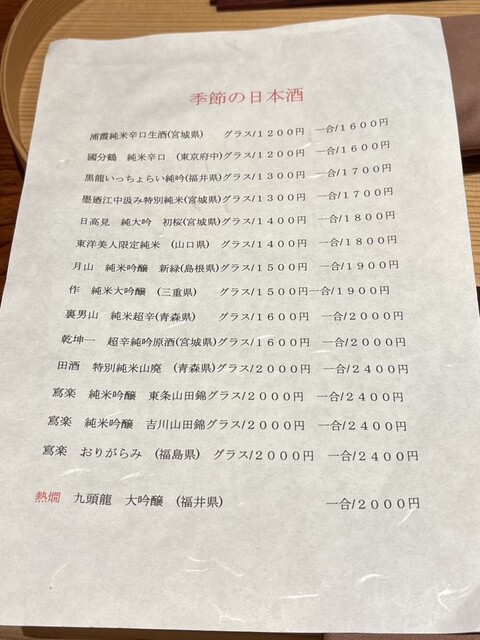 季節の日本酒
浦霞純米辛口生酒(宮城県) グラス/1200円 一合/1600円
國分鶴 純米辛口 (東京府中)グラス/1200円 一合/1600円
黒龍いっちょらい純吟(福井県)グラス/1300円 一合/1700円
墨廼江中汲み特別純米(宮城県)グラス/1300円 一合/1700円
日高見 純大吟 初桜(宮城県)グラス/1400円 一合/1800円
東洋美人限定純米 (山口県) グラス/1400円 一合/1800円
月山 純米吟醸 新緑(島根県)グラス/1500円 一合/1900円
作 純米大吟醸 (三重県) グラス/1500円一合/1900円
裏男山 純米超辛(青森県) グラス/1600円 一合/2000円
乾坤一 超辛純吟原酒(宮城県)グラス/1600円 一合/2000円
田酒 特別純米山廃 (青森県)グラス/2000円 一合/2400円
寫楽 純米吟醸 東条山田錦グラス/2000円 一合/2400円
寫楽 純米吟醸 吉川山田錦グラス/2000円 一合/2400円
寫楽 おりがらみ (福島県) グラス/2000円 一合/2400円
熱燗 九頭龍 大吟醸 (福井県) 一合/2000円